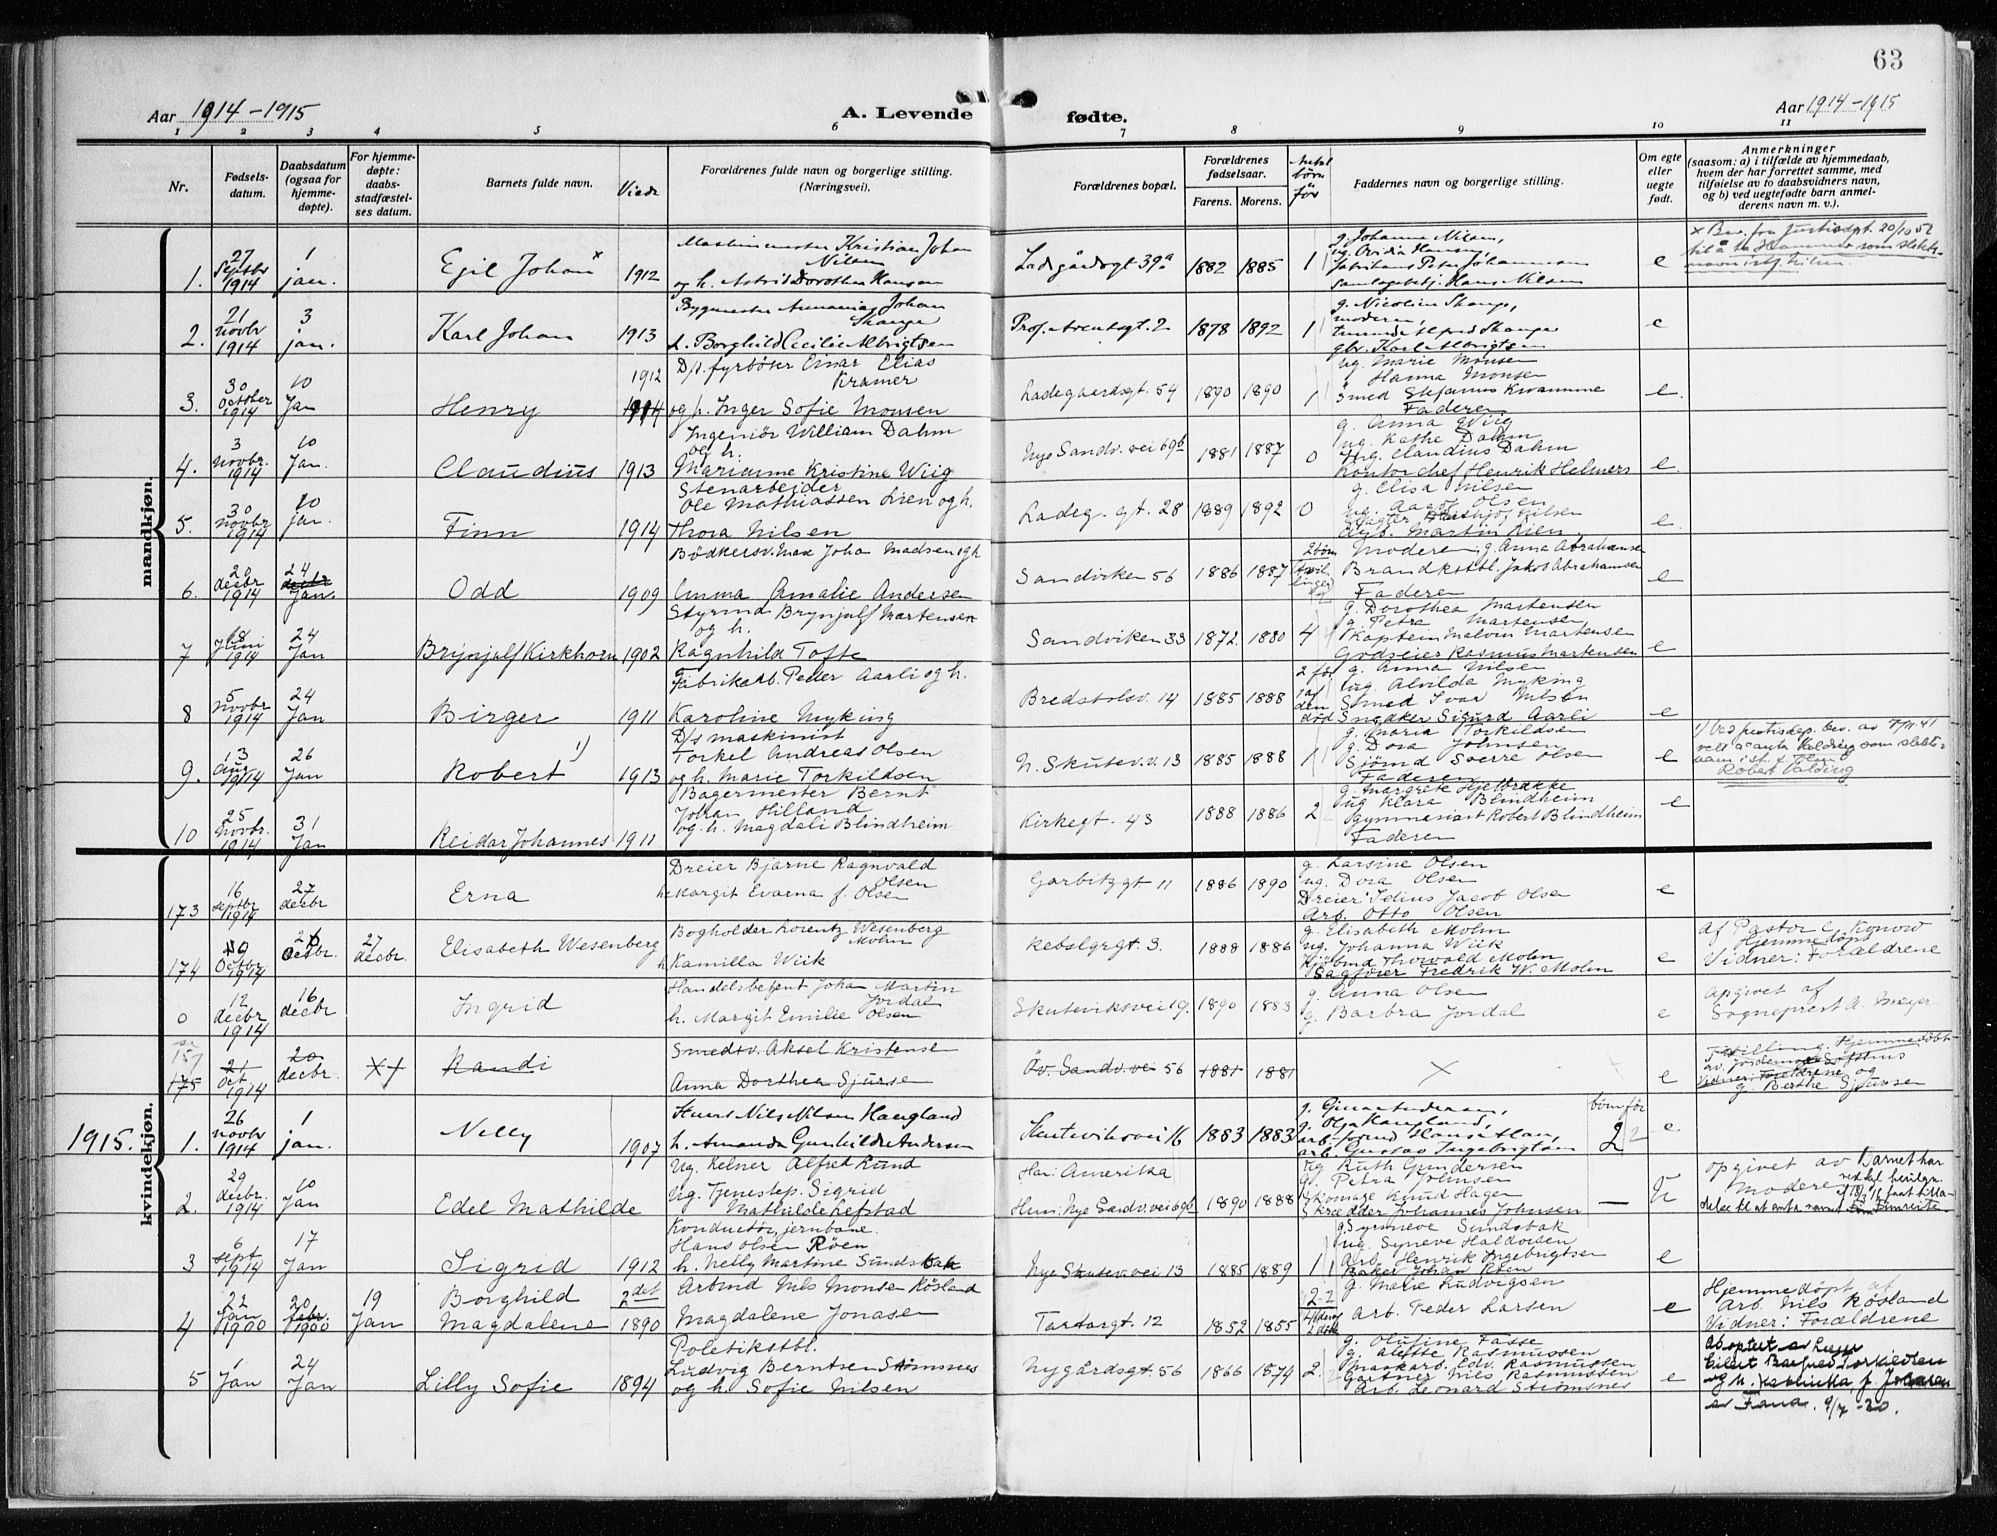 63
Aar 1914-1915
A. Levende fødte.
Aar 1914-1915
1 2 3 4 5 6 7 8 9 10 11
Nr.
Fødsels-
datum.
Daabsdatum
(ogsaa for
hjemme-
døpte).
For hjemme-
døpte:
daabs-
stadfæstel-
ses datum.
Barnets fulde navn.
Viede
Forældrenes fulde navn og borgerlige stilling.
(Næringsvei).
Forældrenes bopæl.
Forældrenes
fødselsaar.
Farens. Morens.
Antal
børn
før
Faddernes navn og borgerlige stilling.
Om egte
eller
uegte
født.
Anmerkninger
(saasom: a) i tilfælde av hjemmedaab,
hvem der har forrettet samme, med
tilføielse av to daabsvidners navn,
og b) ved uegtefødte barn anmel-
derens navn m. v.).
mandkjøn.
1. 27 Septbr 1914 1 jan. Egil Johan x 1912
Maskinmester Kristian Johan
Nilsen
og h. Astrid Dorothea Hansen
Ladgårdsgt 39a 1882 1885 1
g. Johanne Nilsen,
ug. Ovidia Hansen,
Peter Johannesen
Hans Nilsen
e
2. 21 novbr 1914 3 jan. Karl Johan 1913
Bygmester Johan
Skange
h. Borghild Cecilie Albrigtsen
Prof. Arentsgt. 2 1878 1892 1
g. Nicoline Skange,
moderen,
Alfred Skange
Karl Albrigtsen
e
3. 30 October 1914 10 Jan Henry 1912 1914
D/p. fyrbøter Einar Elias
Kramer
og h. Inger Sofie Monsen
Ladegaardsgt. 54 1890 1890 1
ug. Marie Monsen
Hanna Monsen
Smed Stefanus Kvamme
Faderen
e.
4. 3 novbr. 1914 10 Jan. Claudius 1913
Ingeniør William Dahm
og h.
Marianne Kristine Wiig
Nye Sandv. vei 69b 1881 1887 0
g. Anna Wiig
ug. Kathe Dahm
Claudius Dahm
Kontorchef Henrik Helmers
e.
5. 30 novbr 1914 10 jan. Finn 1914
Stenarbeider
Ole Mathiassen Lien og h.
Thora Nilsen
Ladeg. gt. 28 1889 1892 0
g. Elisa Nilsen
ug. Aagot Olsen
Nilsen
Martin Lien
e.
6. 20 decbr 1914 24 decbr Jan. Odd 1909
Bødkersv. Max Joha Madsen og h
Emma Amalie Andersen
Sandviken 56 1886 1887 2 børn
Moderen, g. Anna Abrahamsen
Brandkstbl. Jakob Abrahamsen
Faderen
e
7 18 Juni 1914 24 Jan Brynjulf Kirkhorn 1902
Styrmd Brynjulf Martensen
og h.
Ragnhild Tofte
Sandviken 33 1872. 1880 4
g. Dorothea Martensen
g. Petra Martensen
Kaptein Malvin Martensen
Godseier Rasmus Martensen
e
8 5 novbr 1914 24 Jan Birger 1911
Fabrikarb. Peder Aarli og h.
Karoline Myking
Bredstølsv. 14 1885 1888 2 før
1 af
den
død
g. Anna Nilsen
ug. Alvilda Myking
Smed Ivar Nilsen
Snedker Sigurd Aarli
e
9. 13 Aug 1914 26 Jan Robert 1) 1913
D/s maskinist
Torkel Andreas Olsen
og h. Marie Torkildsen
N. Skutev. v. 13 1885 1888 1
g. Maria Torkildsen
g. Dora Johnsen
Sjømd Sverre Olsen
Faderen
e
10 25 Novbr. 1914 31 Jan Reidar Johannes 1911
Bagermester Bernt
Johan Hilland
og. h. Magdali Blindheim
Kirkegt. 43 1888 1886 2
g. Margrete Hjelbrække
ug Klara Blindheim
Gymnasiast Robert Blindheim
Faderen
e
kvindekjøn.
173 16 septbr 1914 27 decbr Erna
Dreier Bjarne Ragnvald
Olsen
h. Margit Evarna f. Olsen
Garbitzgt 11 1886 1890
g. Larsine Olsen
ug. Dora Olsen
Dreier Jelius Jacob Olsen
Arb. Otto Olsen
e
174 Octbr 1914 27 decbr. Elisabeth Wesenberg
Bogholder Lorentz Wesenberg
Mohn
h Kamilla Wiik
1888 1886
g. Elisabeth Mohn
ug. Johanna Wiik
Kjøbmd Thorvald Mohn
Sagfører Fredrik W. Mohn
e
Af Pastor C. Konow
Hjemmedøpt
Vidner: Forældrene
0 12 decbr 1914 16 decbr Ingrid
Handelsbetjent Johan Martin
Jordal
h. Margit Emilie Olsen
Skuteviksvei 19. 1890 1883
g. Anna Olsen
g. Barbra Jordal
e
Opgivet af
Sogneprest A. Meyer
175 21 Oct 1914 20 decbr. Randi
Smedsv. Aksel Kristensen
Anna Dorthea Sjursen
Øv. Sandv. vei 56 1881 1881
e
Tvilling. Hjemmedøbt
Vidner: Forældrene og
g. Berthe Sjursen
1915. 1. 26 novbr 1914 1 jan. Nelly 1907
Nils Nilsen Haugland
h. Amanda Gunhilde Andersen
Skuteviksvei 16 1883 1883
børn før
2
Olga Haugland,
arb. Gustav Ingebrigtsen
e
2. 29 decbr. 1914 10 Jan Edel Mathilde
Ug. Kelner Alfred Lund
Ug. Tjenestep. Sigrid
Mathilde Lefstad
Han: Amerika
Hun: Nye Sandv. vei 69b 1890 1888
ug Ruth Gundersen
g. Petra Johnsen
Skomager Knud Hagen
Skrædder Johannes Johnsen
—
U
opgivet av
Moderen
Barnet har
3 6 sept 1914 17 Jan Sigrid 1912
Konduktør jernbane
Hans Olsen Røen
h. Nelly Martine Sundsbak
Nye Skutev. vei 13 1885 1889 1
g Synneve Sundsbak
ug. Syneve Haldorsen
Arb. Henrik Ingebrigtsen
Baker Johan Røen
e
4 22 Jan 1900 20 febr. 1900 19 Jan Borghild
Magdalene 2det 1890
Arbmd Nils Monsen Røsland
Magdalene Jonasen
Tartargt. 12 1852 1855
g. Malie Ludvigsen
Arb. Peder Larsen
e
Hjemmedøpt af
Arb. Nils Røsland
Vidner: Forældrene
5 1 Jan 24 Jan Lilly Sofie 1894
Politikstbl.
Ludvig Berntsen Strømsnes
og h. Sofie Nilsen
Nygårdsgt 56 1866 1874 2.
g. Olufine Fasse
g. Alette Rasmussen
Maskarb. Edv. Rasmussen
Gartner Nils Rasmussen
Arb. Leonard Strømsnes
e
Adoptert av
Torkildsen
av Fana. 9/7-20.